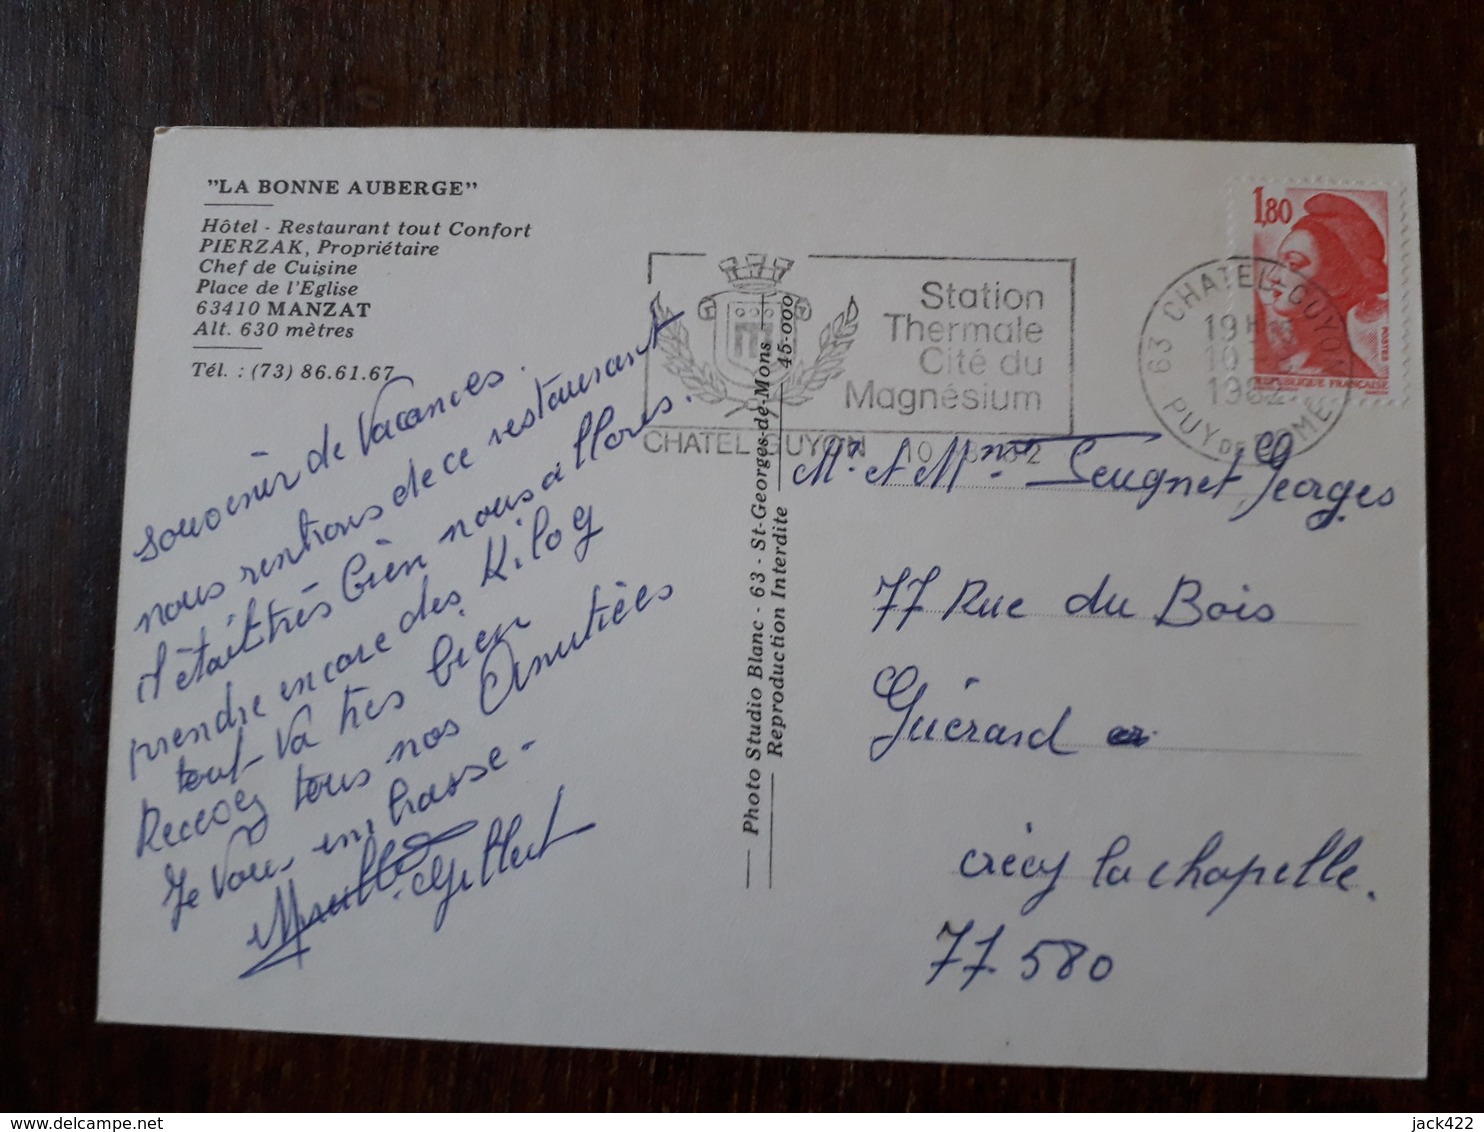 "LA BONNE AUBERGE"
Hôtel - Restaurant tout Confort
PIERZAK, Propriétaire
Chef de Cuisine
Place de l'Eglise
63410 MANZAT
Alt. 630 mètres
Tél. : (73) 86.61.67
souvenir de Vacances.
nous rentrons de ce restaurant
il était très bien nous allons
prendre encore des Kilog
tout va très bien
Recevez tous nos Amitiées
Je Vous embrasse -
Gilbert
Photo Studio Blanc - 63 - St-Georges-de-Mons
Reproduction Interdite 45-000
Station
Thermale
Cité du
Magnésium
CHATEL GUYON 10
63 CHATEL-GUYON
19H
10
1982
PUY DE DOME
1,80
POSTES
REPUBLIQUE FRANÇAISE
Mr et Mme Georges
77 Rue du Bois
Guérard
crécy la chapelle.
77.580
delcampe.net
jack422